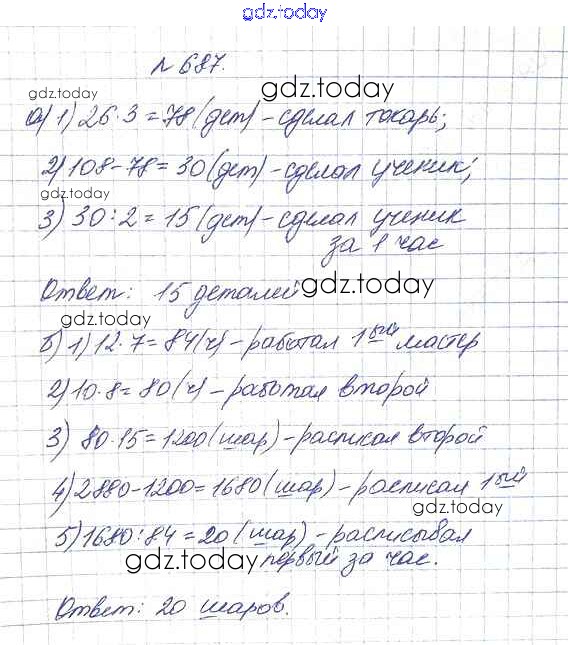 gdz.today
№ 687.
gdz.today
gdz.today
а) 1) 26·3 = 78 (дет) - сделал токарь;
2) 108-78 = 30 (дет) - сделал ученик;
gdz.today
3) 30:2 = 15 (дет) - сделал ученик
за 1 час
Ответ: 15 деталей
gdz.today
gdz.today
б) 1) 12·7 = 84 (ч) - работал 1ый мастер
2) 10·8 = 80 (ч) - работал второй
3) 80·15 = 1200 (шар) - расписал второй
4) 2880-1200 = 1680 (шар) - расписал 1ый
5) 1680:84 = 20 (шар) - расписывал
gdz.today
первый за час.
Ответ: 20 шаров.